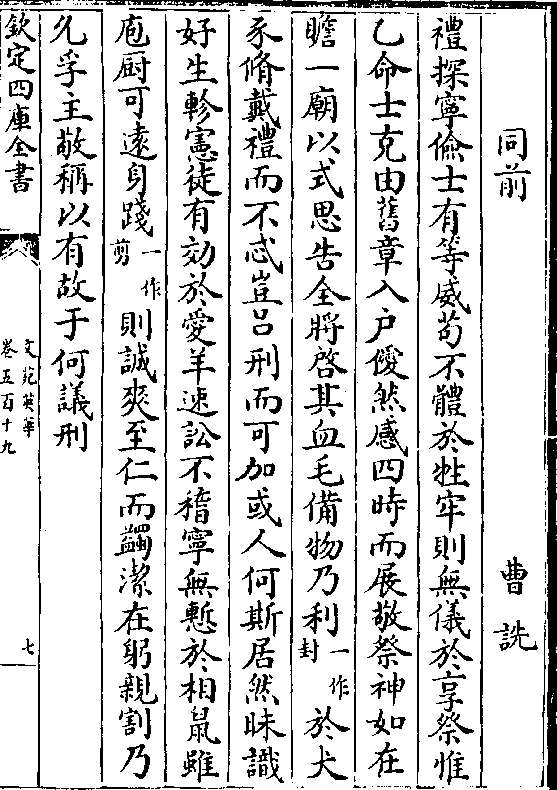 同前 曹詵
禮探寧儉士有等威苟不體於牲牢則無儀於享祭惟
乙命士克由舊章入户僾然感四時而展敬祭神如在
瞻一廟以式思告全將啓其血毛備物乃利一作封於犬
豕脩戴禮而不忒豈呂刑而可加或人何斯居然昧識
好生軫憲徒有効於愛羊速訟不稽寧無慙於相鼠雖
庖厨可逺身踐一作剪則誠爽至仁而蠲潔在躬親割乃
允孚主敬稱以有故于何議刑
欽定四庫全書
文苑英華
卷五百十九
七